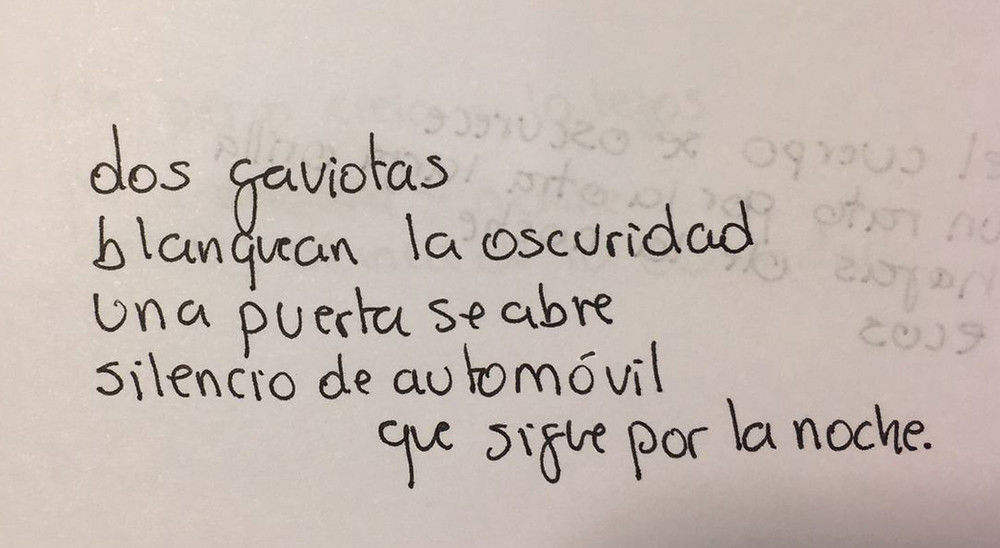 dos gaviotas
blanquean la oscuridad
una puerta se abre
silencio de automóvil
que sigue por la noche.